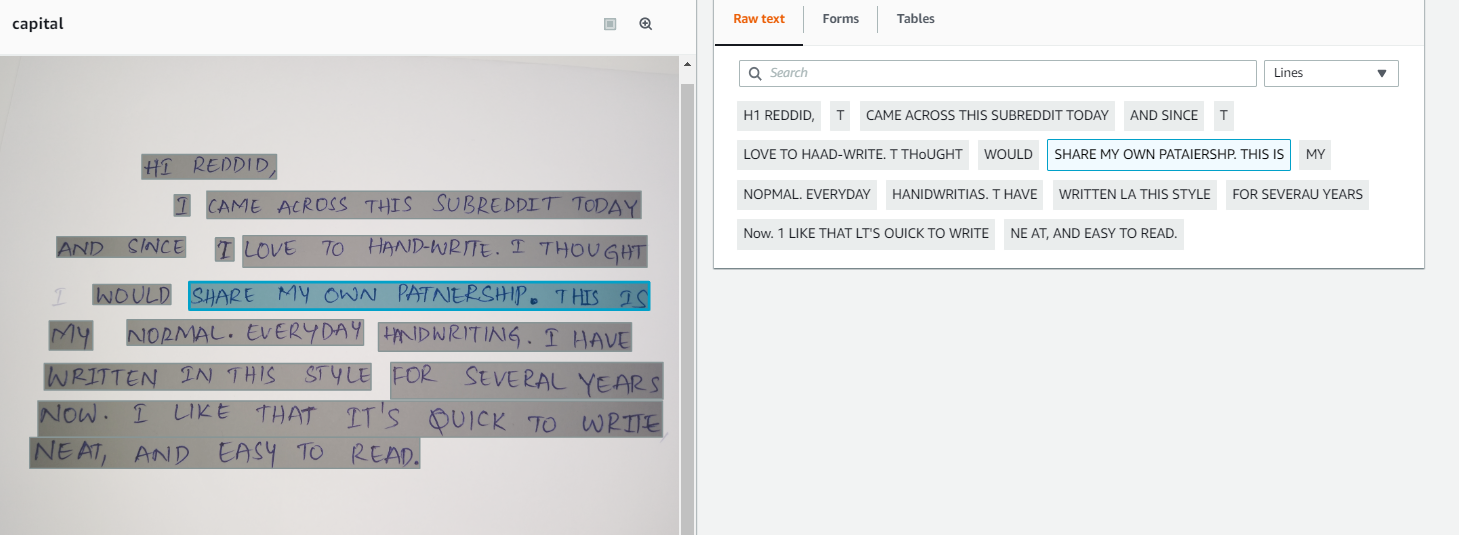 capital
HI REDDID,
I CAME ACROSS THIS SUBREDDIT TODAY
AND SINCE I LOVE TO HAND-WRITE. I THOUGHT
I WOULD SHARE MY OWN PATNERSHIP. THIS IS
MY NORMAL. EVERYDAY HANDWRITING. I HAVE
WRITTEN IN THIS STYLE FOR SEVERAL YEARS
NOW. I LIKE THAT IT'S QUICK TO WRITE
NEAT, AND EASY TO READ.
Raw text Forms Tables
Search Lines
H1 REDDID, T CAME ACROSS THIS SUBREDDIT TODAY AND SINCE T
LOVE TO HAAD-WRITE. T THoUGHT WOULD SHARE MY OWN PATAIERSHP. THIS IS MY
NOPMAL. EVERYDAY HANIDWRITIAS. T HAVE WRITTEN LA THIS STYLE FOR SEVERAU YEARS
Now. 1 LIKE THAT LT'S OUICK TO WRITE NE AT, AND EASY TO READ.